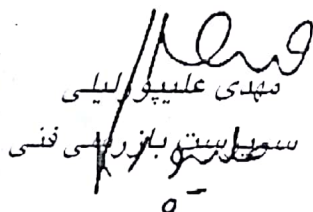 مهدی علیپور لیلی
سرپرست بازرسی فنی